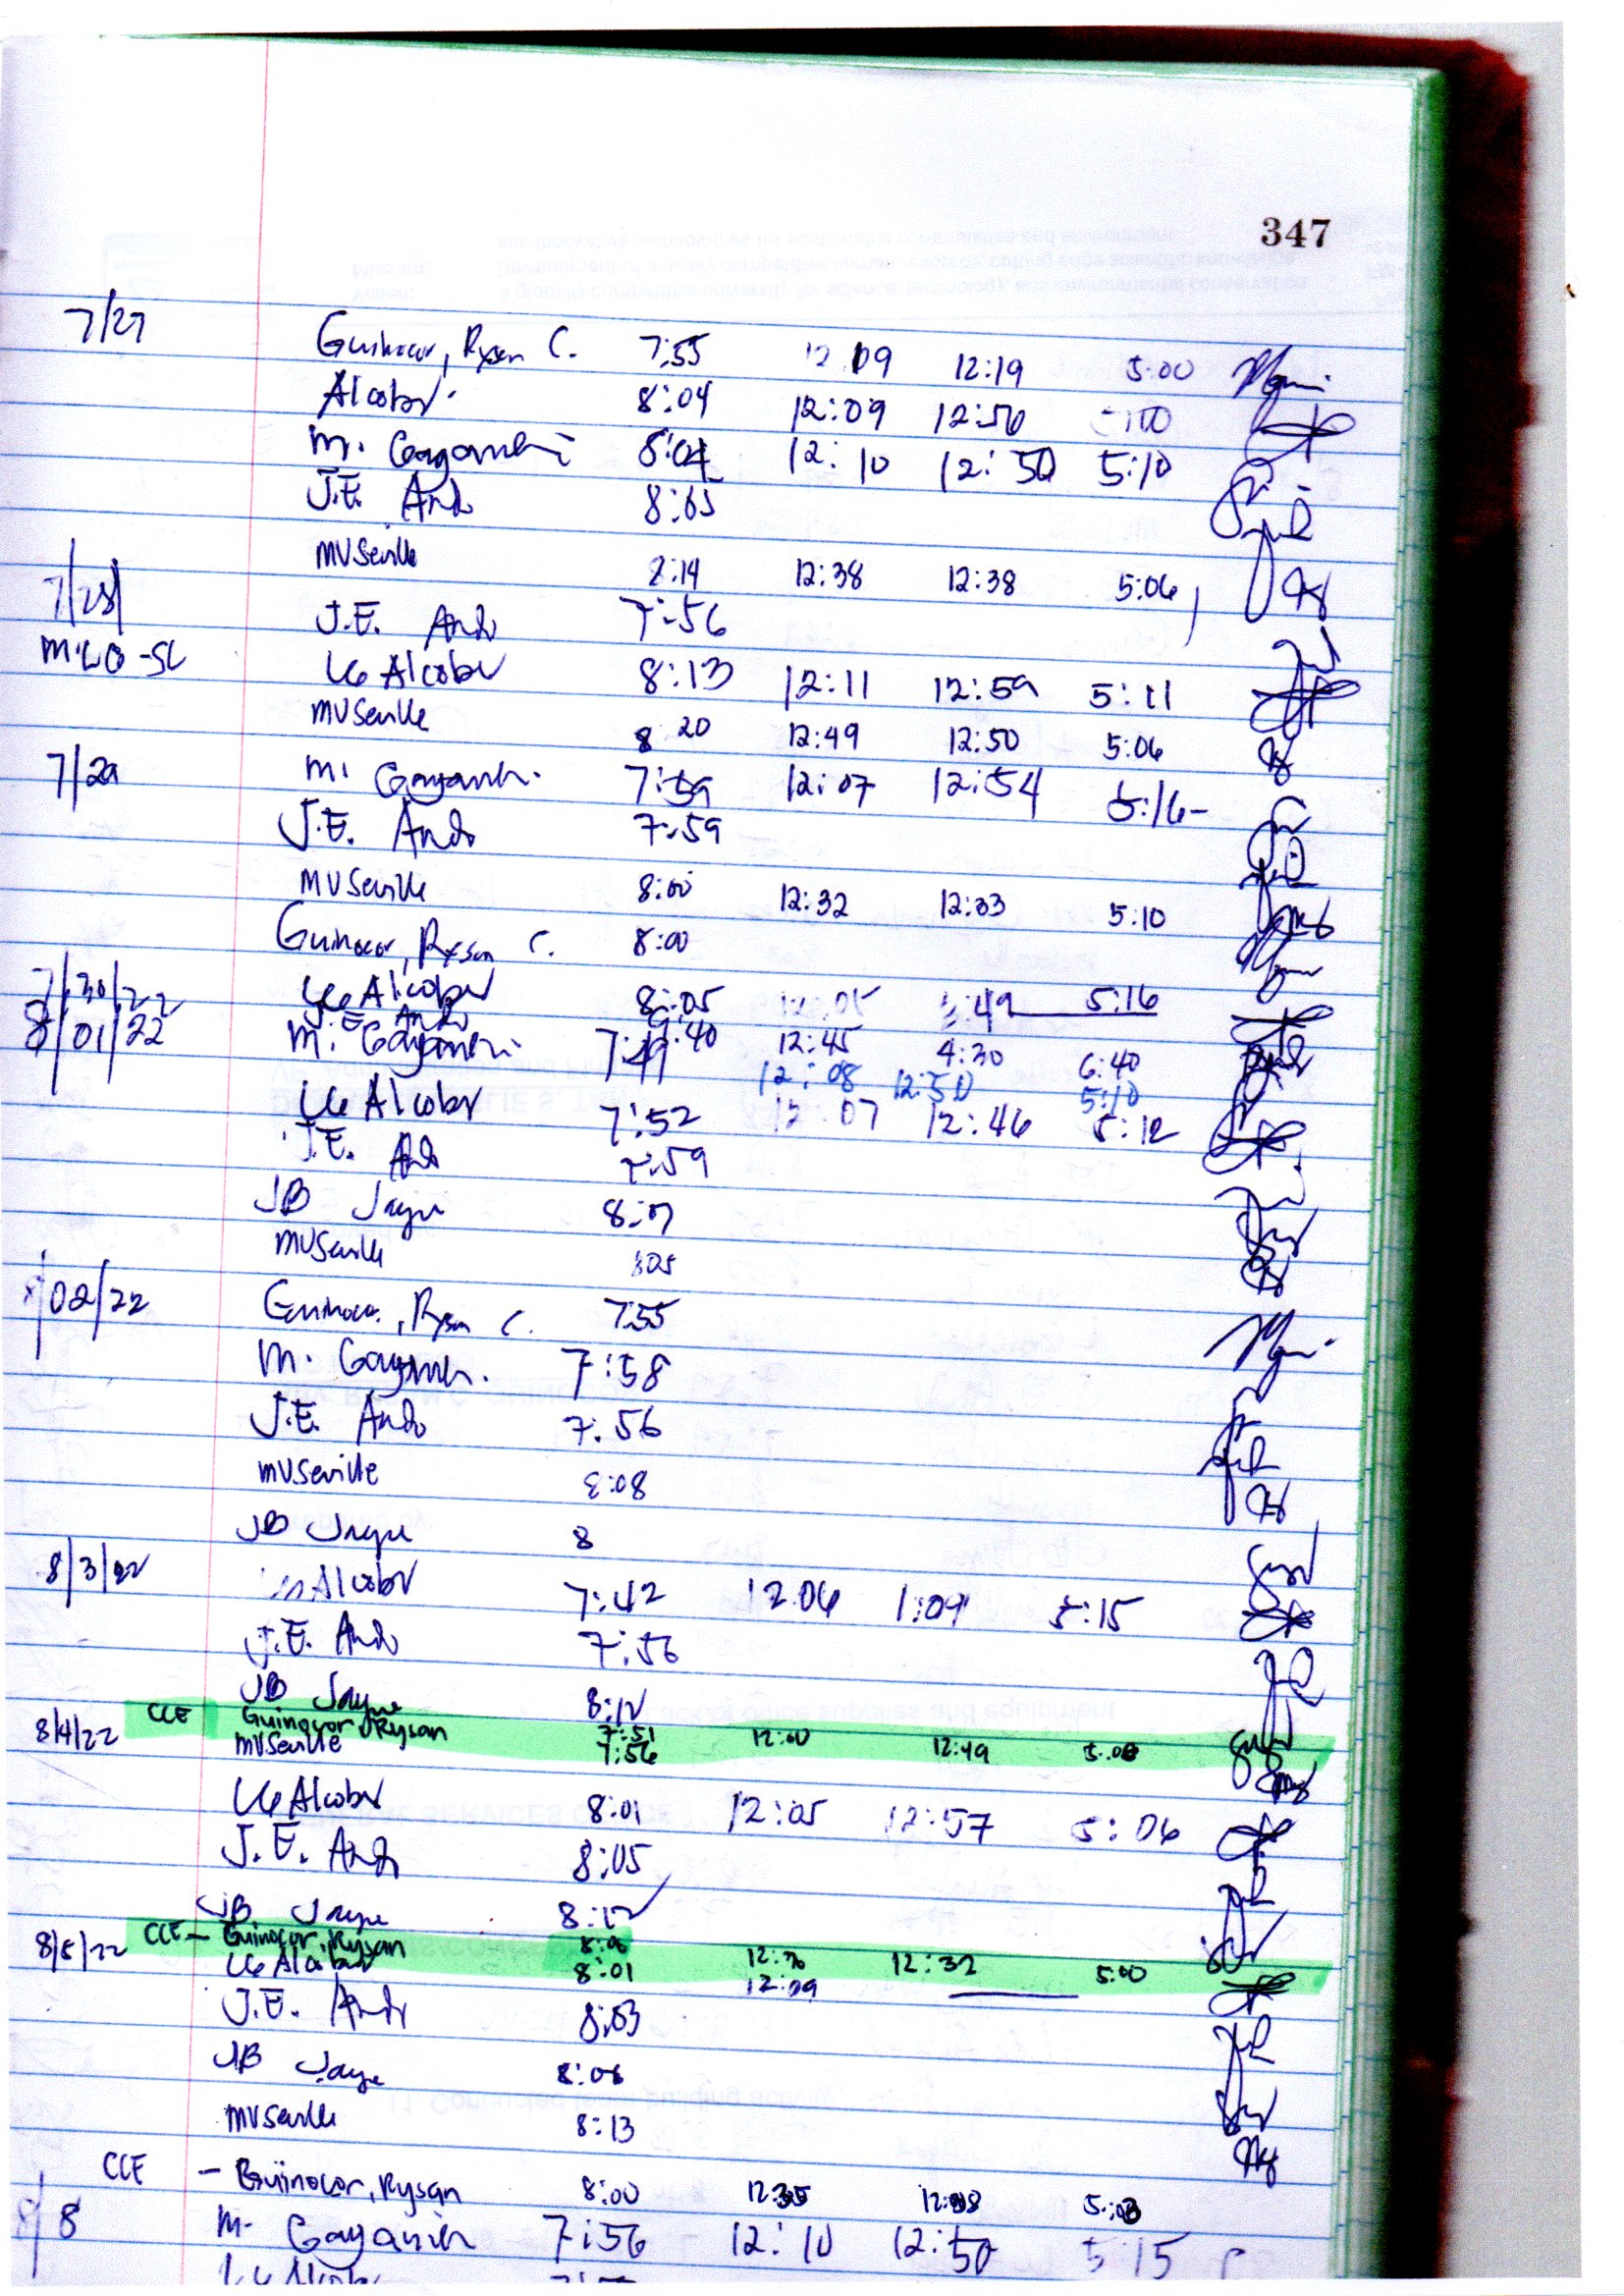 347
7/27 Guinocor, Rysan C. 7:55 12:09 12:19 5:00
Alcober 8:04 12:09 12:56
M. Gayanilo 8:04 12:10 12:50 5:10
J.E. Ando 8:03
MVSeville 8:14 12:38 12:38 5:06
7/28 J.E. Ando 7:56
LG Alcober 8:13 12:11 12:59 5:11
MVSeville 8 20 12:49 12:50 5:06
7/29 M. 7:59 12:07 12:54 5:16
J.E. Ando 7:59
MVSeville 8:00 12:32 12:33 5:10
Guinocor, Rysan C. 8:00
LG Alcober 8:05 12:05 :49 5:16
7/30/22 J.E. Ando :40 12:45 4:30 6:40
8/01/22 M. Gayanilo 7:49 12:08 12:50 5:10
LG Alcober 7:52 12:07 12:46 5:12
J.E. Ando 7:59
JB 8:07
MVSeville 8:05
8/02/22 Guinocor, Rysan C. 7:55
M. 7:58
J.E. Ando 7:56
MVSeville 8:08
JB 8
8/3/22 Alcober 7:42 12:06 1:09 5:15
J.E. Ando 7:56
JB 8:12
CCE Guinocor, Rysan 7:51
8/4/22 MVSeville 7:56 12:00 12:49 5:00
LG Alcober 8:01 12:05 12:57 5:06
J.E. Ando 8:05
JB 8:12
CCE - Guinocor, Rysan 12:32 5:00
8/5/22 LG Alcober 8:01 12:09
J.E. Ando 8:03
JB 8:06
MVSeville 8:13
CCE - Guinocor, Rysan 8:00 12:35 5:03
8/8 M. 7:56 12:10 12:50 5:15
LG Alcober